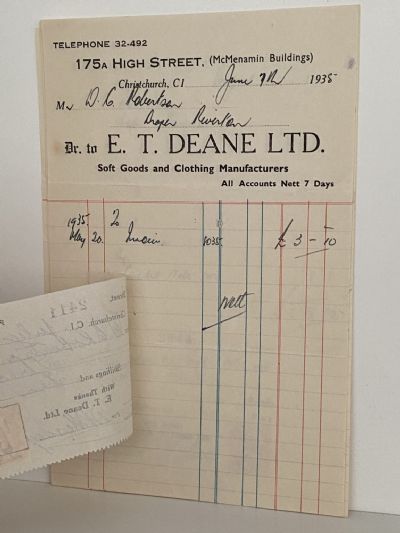 TELEPHONE 32-492
175A HIGH STREET, (McMenamin Buildings)
Christchurch, C1 June 7th 1935
Mr D. G. Robertson
Draper Riverton
Dr. to E. T. DEANE LTD.
Soft Goods and Clothing Manufacturers
All Accounts Nett 7 Days
1935 To
May 20. Invoice 1035 £ 3 – 10
Nett
2411
Street,
Christchurch, C1
Shillings and
With Thanks
E. T. Deane Ltd.